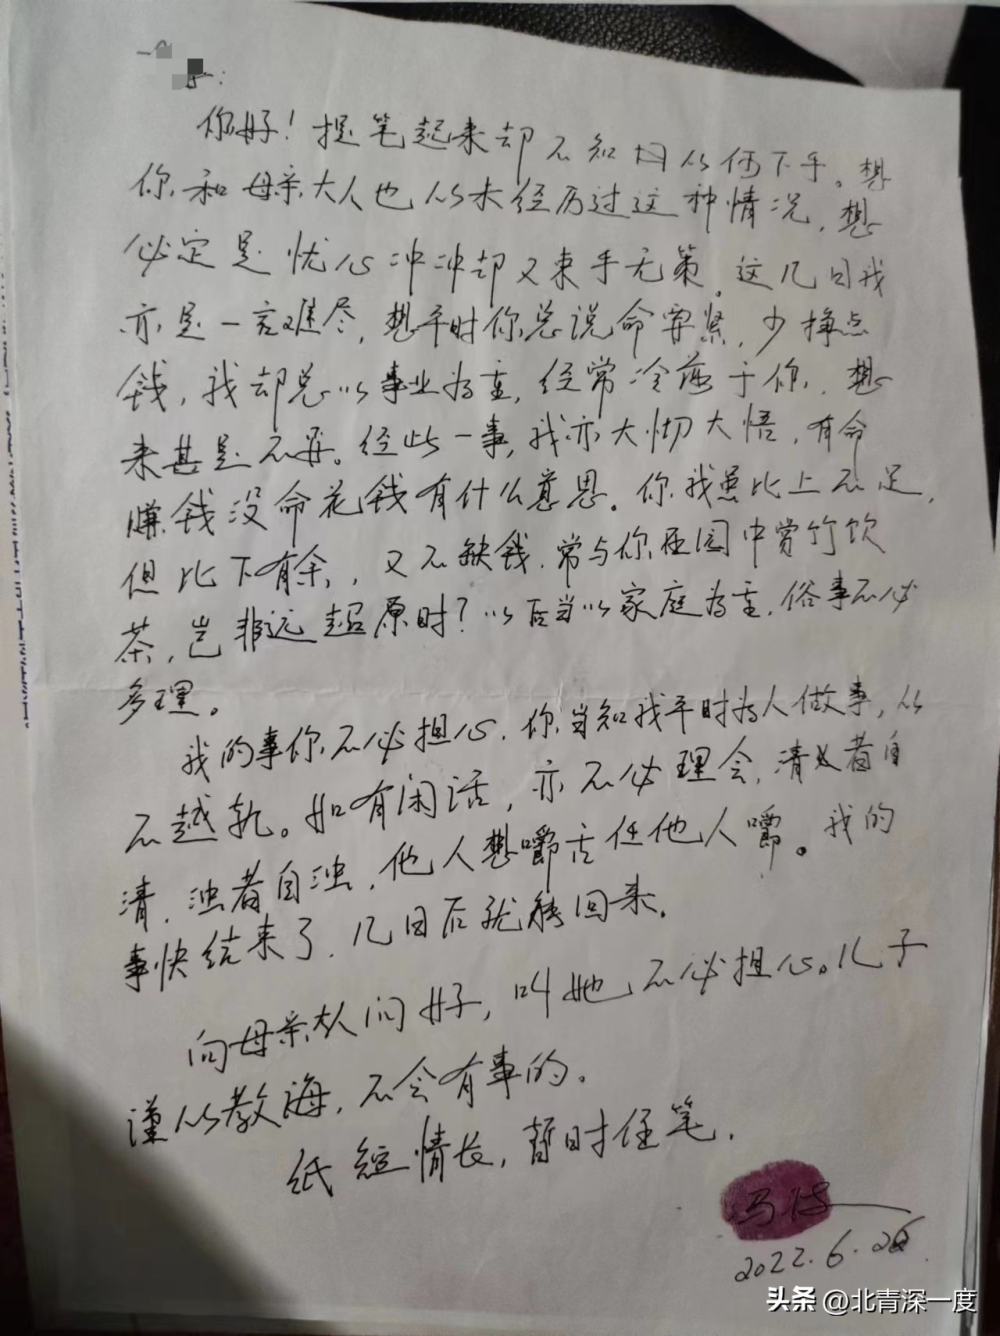 你好！提笔起来却不知因从何下手。想
你和母亲大人也从未经历过这种情况，想
必定是忧心冲冲却又束手无策。这几日我
亦是一言难尽，想平时你总说命要紧，少挣点
钱，我却总以事业为重，经常冷落于你，想
来甚是不安。经此一事，我亦大彻大悟，有命
赚钱没命花钱有什么意思。你我虽比上不足，
但比下有余，又不缺钱，常与你在园中赏竹饮
茶，岂非远超原时？以后当以家庭为主，俗事不必
多理。
我的事你不必担心，你当知我平时为人做事，从
不越轨。如有闲话，亦不必理会，清者自
清，浊者自浊，他人想嚼舌任他人嚼。我的
事快结束了，几日后就能回来。
向母亲大人问好，叫她不必担心。儿子
谨从教诲，不会有事的。
纸短情长，暂时住笔。
2022.6.26
头条 @北青深一度